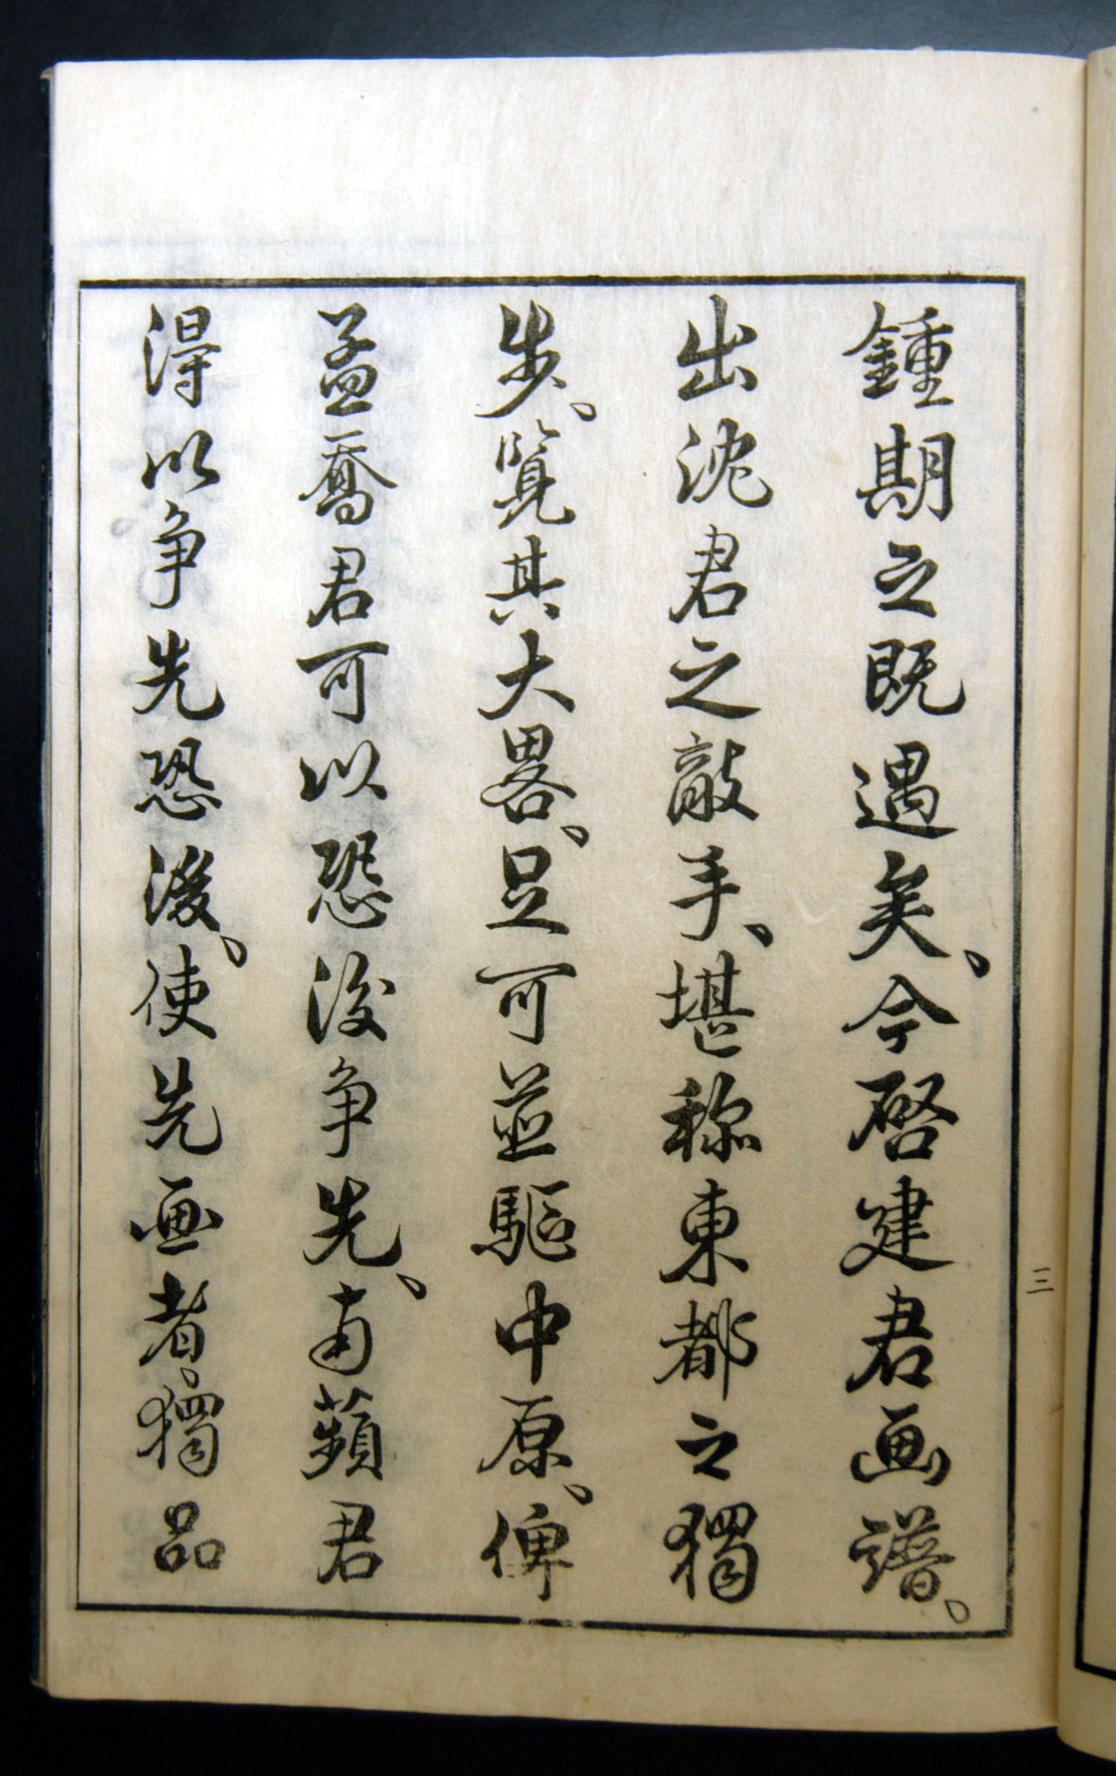 鍾期之既遇矣、今啓建君画譜、
出沈君之敵手、堪称東都之獨
步、覧其大畧、足可並驅中原、俾
孟喬君可以恐後争先、南蘋君
得以争先恐後、使先画者、獨品
三